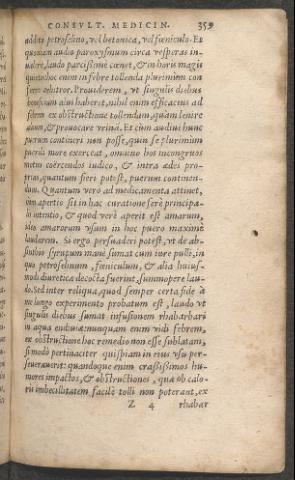 CONSVLT. MEDICIN. 359
addito petroselino, vel betonica, vel fœniculo. Et
quoniam audio paroxysmum circa vesperas in-
uadere, laudo parcissimè cœnet, & in horis magis
quam hoc enim in febre tollenda plurimùm con-
ferre arbitror. Prouiderem, vt singulis diebus
beneficium alui haberet, nihil enim efficacius ad
febrem ex obstructione tollendam, quàm lenire
aluum, & prouocare vrinã. Et cùm audius hunc
puerum contineri non posse, quin se plurimùm
puerili more exerceat, omnino hos incongruos
motus coërcendos iudico, & intra ædes pro-
prias, quantum fieri potest, puerum continen-
dum. Quantum verò ad medicamenta attinet,
cùm apertio sit in hac curatione ferè principa-
lis intentio, & quod verè aperit est amarum,
ideo amarorum vsum in hoc puero maximè
laudarem. Si ergo persuaderi potest, vt de ab-
sinthio syrupum manè sumat cum iure pulli, in
quo petroselinum, fœniculum, & alia huius-
modi diuretica decocta fuerint, summopere lau-
do. Sed inter reliqua, quod semper certa fide à
me longo experimento probatum est, laudo vt
singulis diebus sumat infusionem rhabarbari
in aqua endiuiæ: nunquam enim vidi febrem,
ex obstructione hoc remedio non esse sublatam,
si modò pertinaciter quispiam in eius vsu per-
seuerauerit: quandoque enim crassissimos hu-
mores impactos, & obstructiones, quæ ob calo-
ris imbecillitatem facilè tolli non poterant, ex
Z 4 rhabar